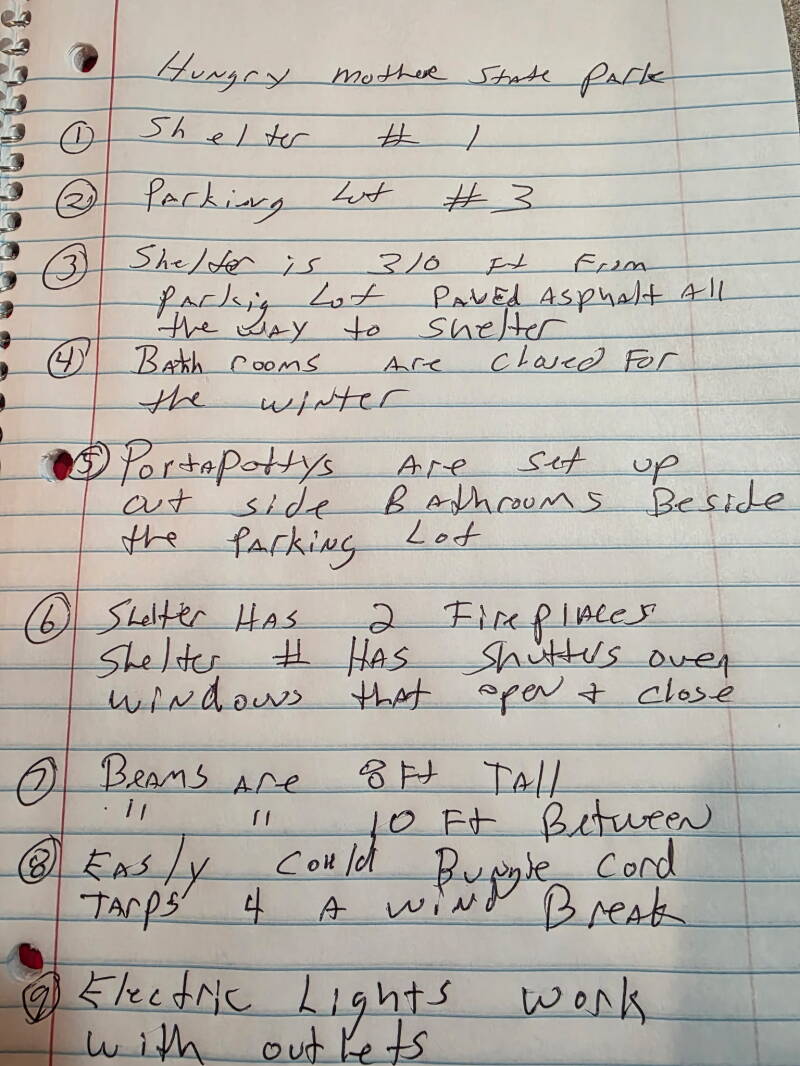 Hungry Mother State Park
① Shelter # 1
② Parking Lot # 3
③ Shelter is 310 Ft From
Parkig Lot PAVED ASphAlt All
the WAY to Shelter
④ BAth rooms Are closed For
the WINTER
⑤ PortAPottys Are Set up
out side BAthrooms Beside
the PArKING Lot
⑥ Shelter HAS 2 FireplAces
Shelter # HAS Shutters over
WINDOWS thAt open & close
⑦ BEAMS ARE 8 Ft TAll
" " 10 Ft Between
⑧ EASly Could Bungie Cord
TArps 4 A WIND BreAk
⑨ Electric Lights work
with outlets